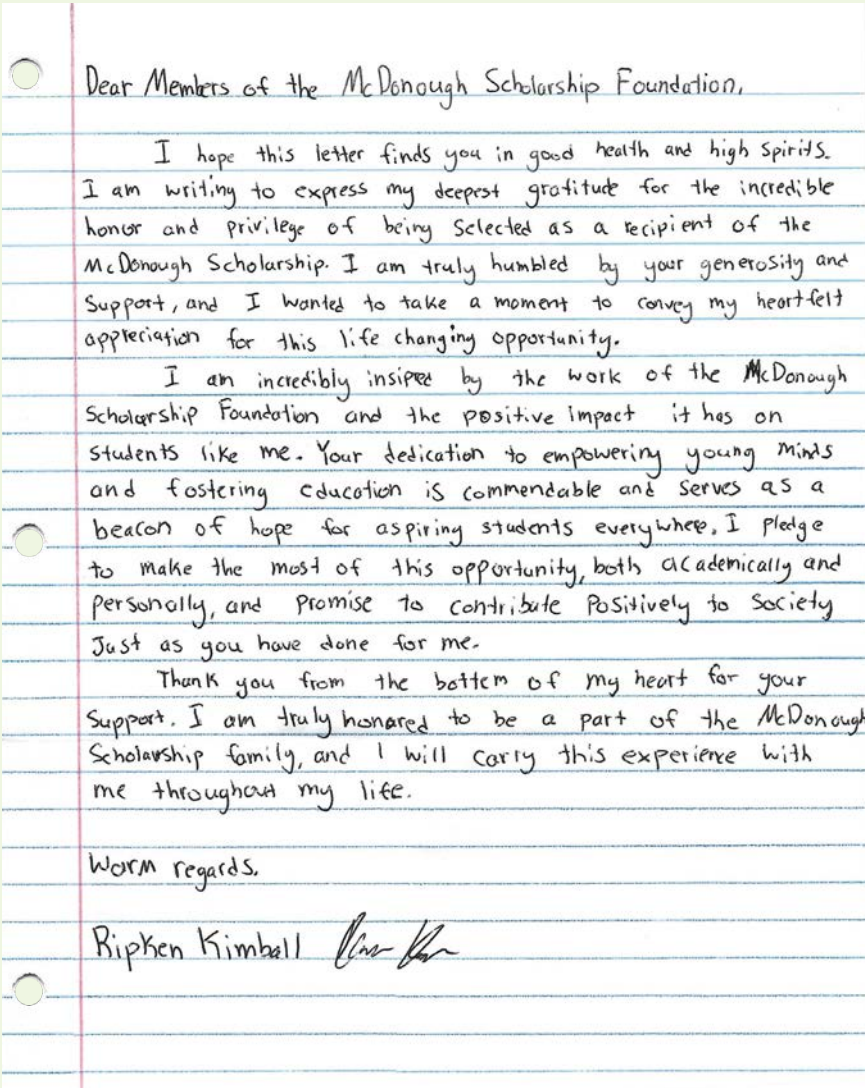 Dear Members of the McDonough Scholarship Foundation,
I hope this letter finds you in good health and high spirits.
I am writing to express my deepest gratitude for the incredible
honor and privilege of being selected as a recipient of the
McDonough Scholarship. I am truly humbled by your generosity and
support, and I wanted to take a moment to convey my heartfelt
appreciation for this life changing opportunity.
I am incredibly insipred by the work of the McDonough
Scholarship Foundation and the positive impact it has on
students like me. Your dedication to empowering young minds
and fostering education is commendable and serves as a
beacon of hope for aspiring students everywhere. I pledge
to make the most of this opportunity, both academically and
personally, and promise to contribute positively to society
Just as you have done for me.
Thank you from the bottom of my heart for your
support. I am truly honored to be a part of the McDonough
Scholarship family, and I will carry this experience with
me throughout my life.
Warm regards.
Ripken Kimball